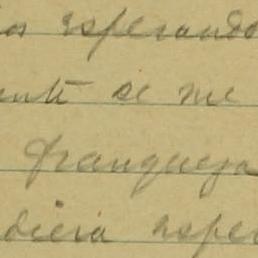 os esperando
ente se me
franqueza
diera esper